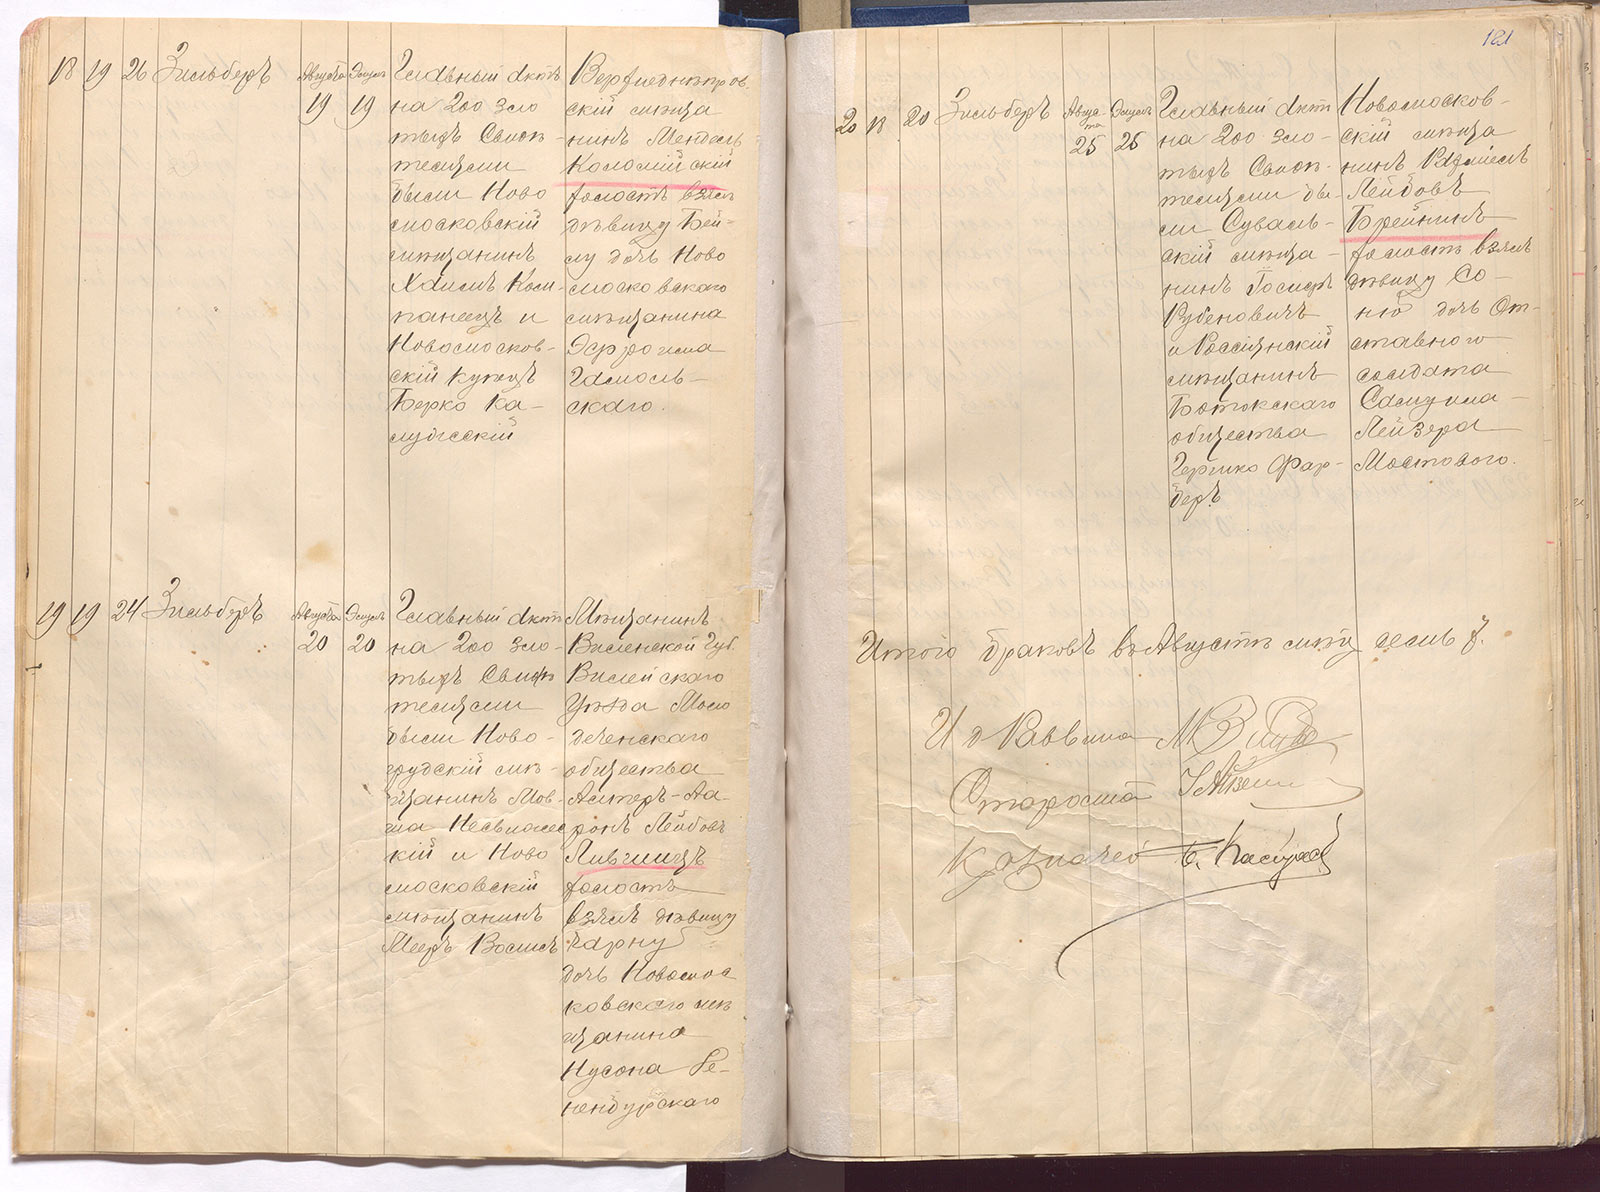 18 19 26 Зильберъ
Августа 19
Элуль 19
Главный актъ
на 200 зло
тыхъ Свидѣ-
телями
были Ново
московскій
мѣщанинъ
Хаимъ Ком-
панеецъ и
Новомосков-
скій купецъ
Берко Ка-
Верхнеднѣпров
скій мѣща
нинъ Мендель
Коломійскій
холостъ взялъ
дѣвицу Бей-
лу дочь Ново
московскаго
мѣщанина
Эфроима
скаго.
19 19 24 Зильберъ
Августа 20
Элуль 20
Главный актъ
на 200 зло-
тыхъ Свидѣ
телями
были Ново-
грудскій мѣ-
щанинъ Мов-
ша Несвижес
кій и Ново
московскій
мѣщанинъ
Мееръ
Мѣщанинъ
Виленской губ.
Вилейскаго
Уѣзда Моло
деченскаго
общества
ронъ Лейбовъ
Лившицъ
холостъ
взялъ дѣвицу
Чарну
дочь Новомос
ковскаго мѣ
щанина
Нусона
121
20 18 20 Зильберъ
Авгус
та
25
Элуль
25
Главный актъ
на 200 зло-
тыхъ Свидѣ-
телями бы-
ли Суваль-
скій мѣща-
нинъ
Рубеновичъ
и Россіянскій
мѣщанинъ
общества
Гершко Фар-
беръ
Новомосков-
скій мѣща
нинъ
Лейбовъ
Брейнинъ
холостъ взялъ
дѣвицу Со-
ню дочь От-
ставного
солдата
Самуила-
Лейзера
Мостового.
Итого браковъ въ Августѣ мѣцѣ семь 7.
И д Раввина
Староста
Казначей